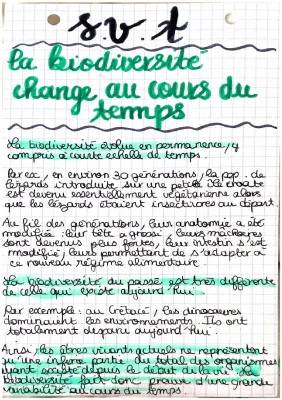 s.v.t
La biodiversité
change au cours du
temps
La biodiversité évolue en permanence, y
compris à courte échelle de temps.
Par ex, en environ 30 générations, la pop. de
lézards introduite sur une petite île croate
est devenu essentiellement végétarienne alors
que les lézards étaient insectivores au départ.
Au fil des générations, leur anatomie a été
modifiée : leur tête a grossi, leurs mâchoires
sont devenus plus fortes, leur intestin s'est
modifié, leurs permettant de s'adapter à
ce nouveau régime alimentaire.
La biodiversité du passé est très différente
de celle qui existe aujourd'hui.
Par exemple : au Crétacé, les dinosaures
dominaient les environnements. Ils ont
totalement disparu aujourd'hui.
Ainsi, les êtres vivants actuels ne représentent
qu'une infime partie du total des organismes
ayant existé depuis le début de la vie. La
biodiversité fait donc preuve d'une grande
variabilité au cours du temps.